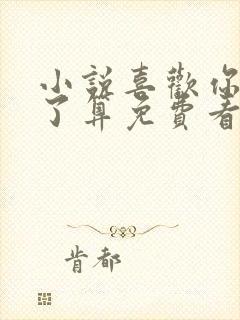 小說喜歡你
了算免費看
肯都